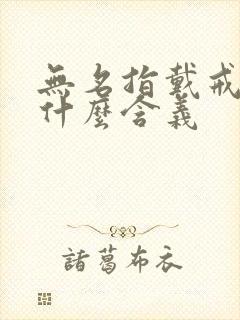 無名指戴戒
什麼含義
諸葛布衣